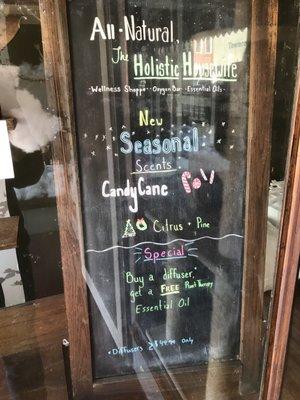 All-Natural,
The
Holistic Housewife
Wellness Shoppe · Oxygen Bar · Essential Oils
New
Seasonal
Scents
Candy Cane
Citrus + Pine
Special
Buy a diffuser,
get a FREE Plant Therapy
Essential Oil
Only